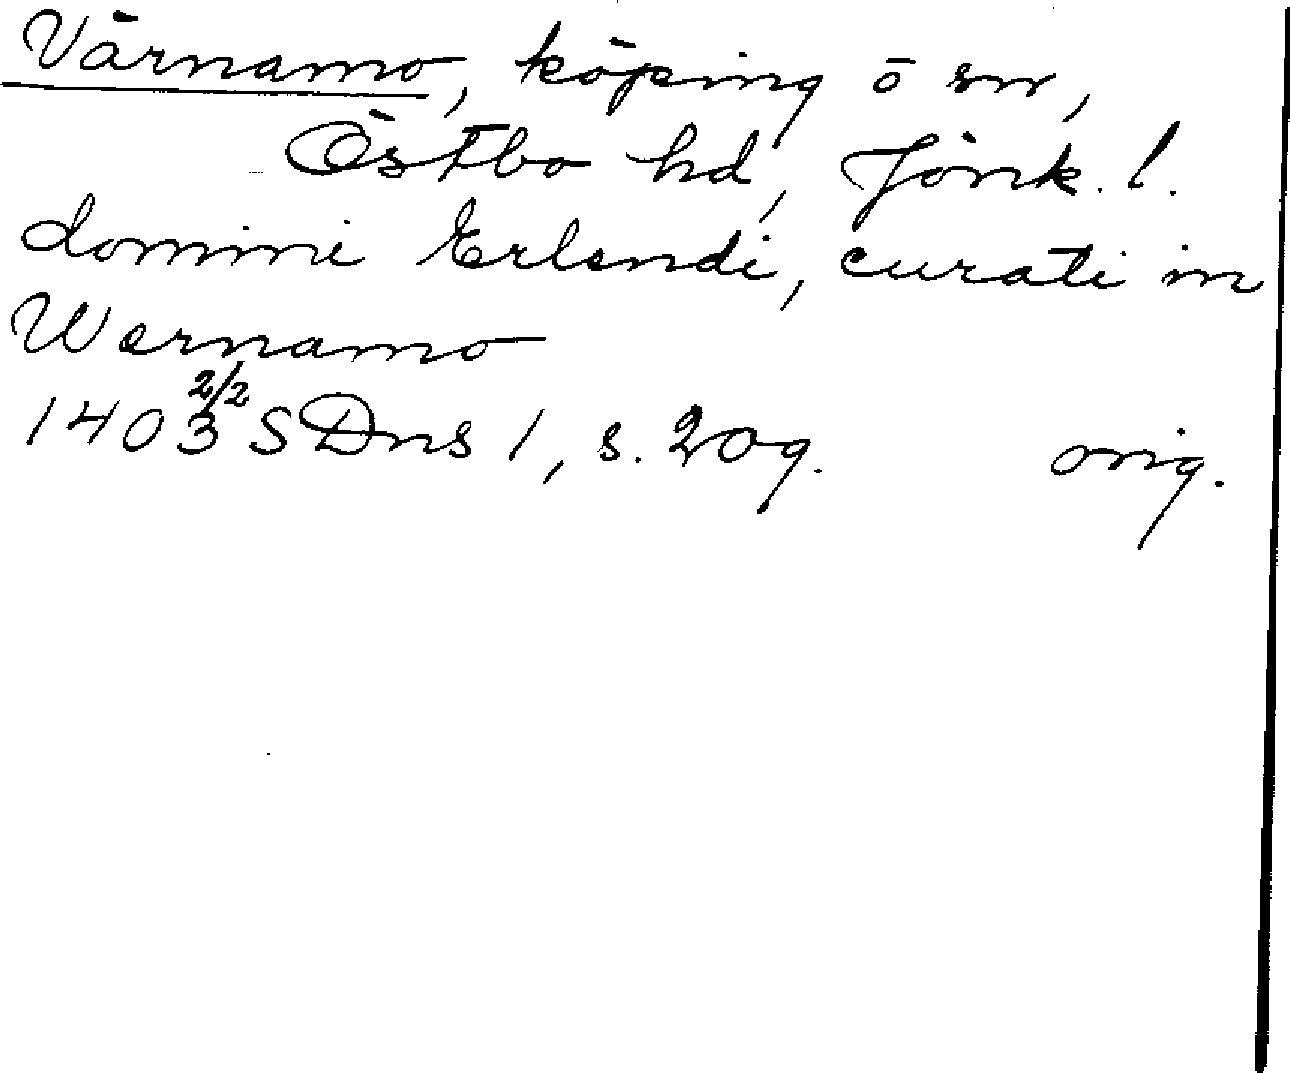 Värnamo, köping o sn,
Östbo hd, Jönk. l.
domini Erlendi, curati in
Wernamo
1403 2/2 SDns 1, s. 209. orig.